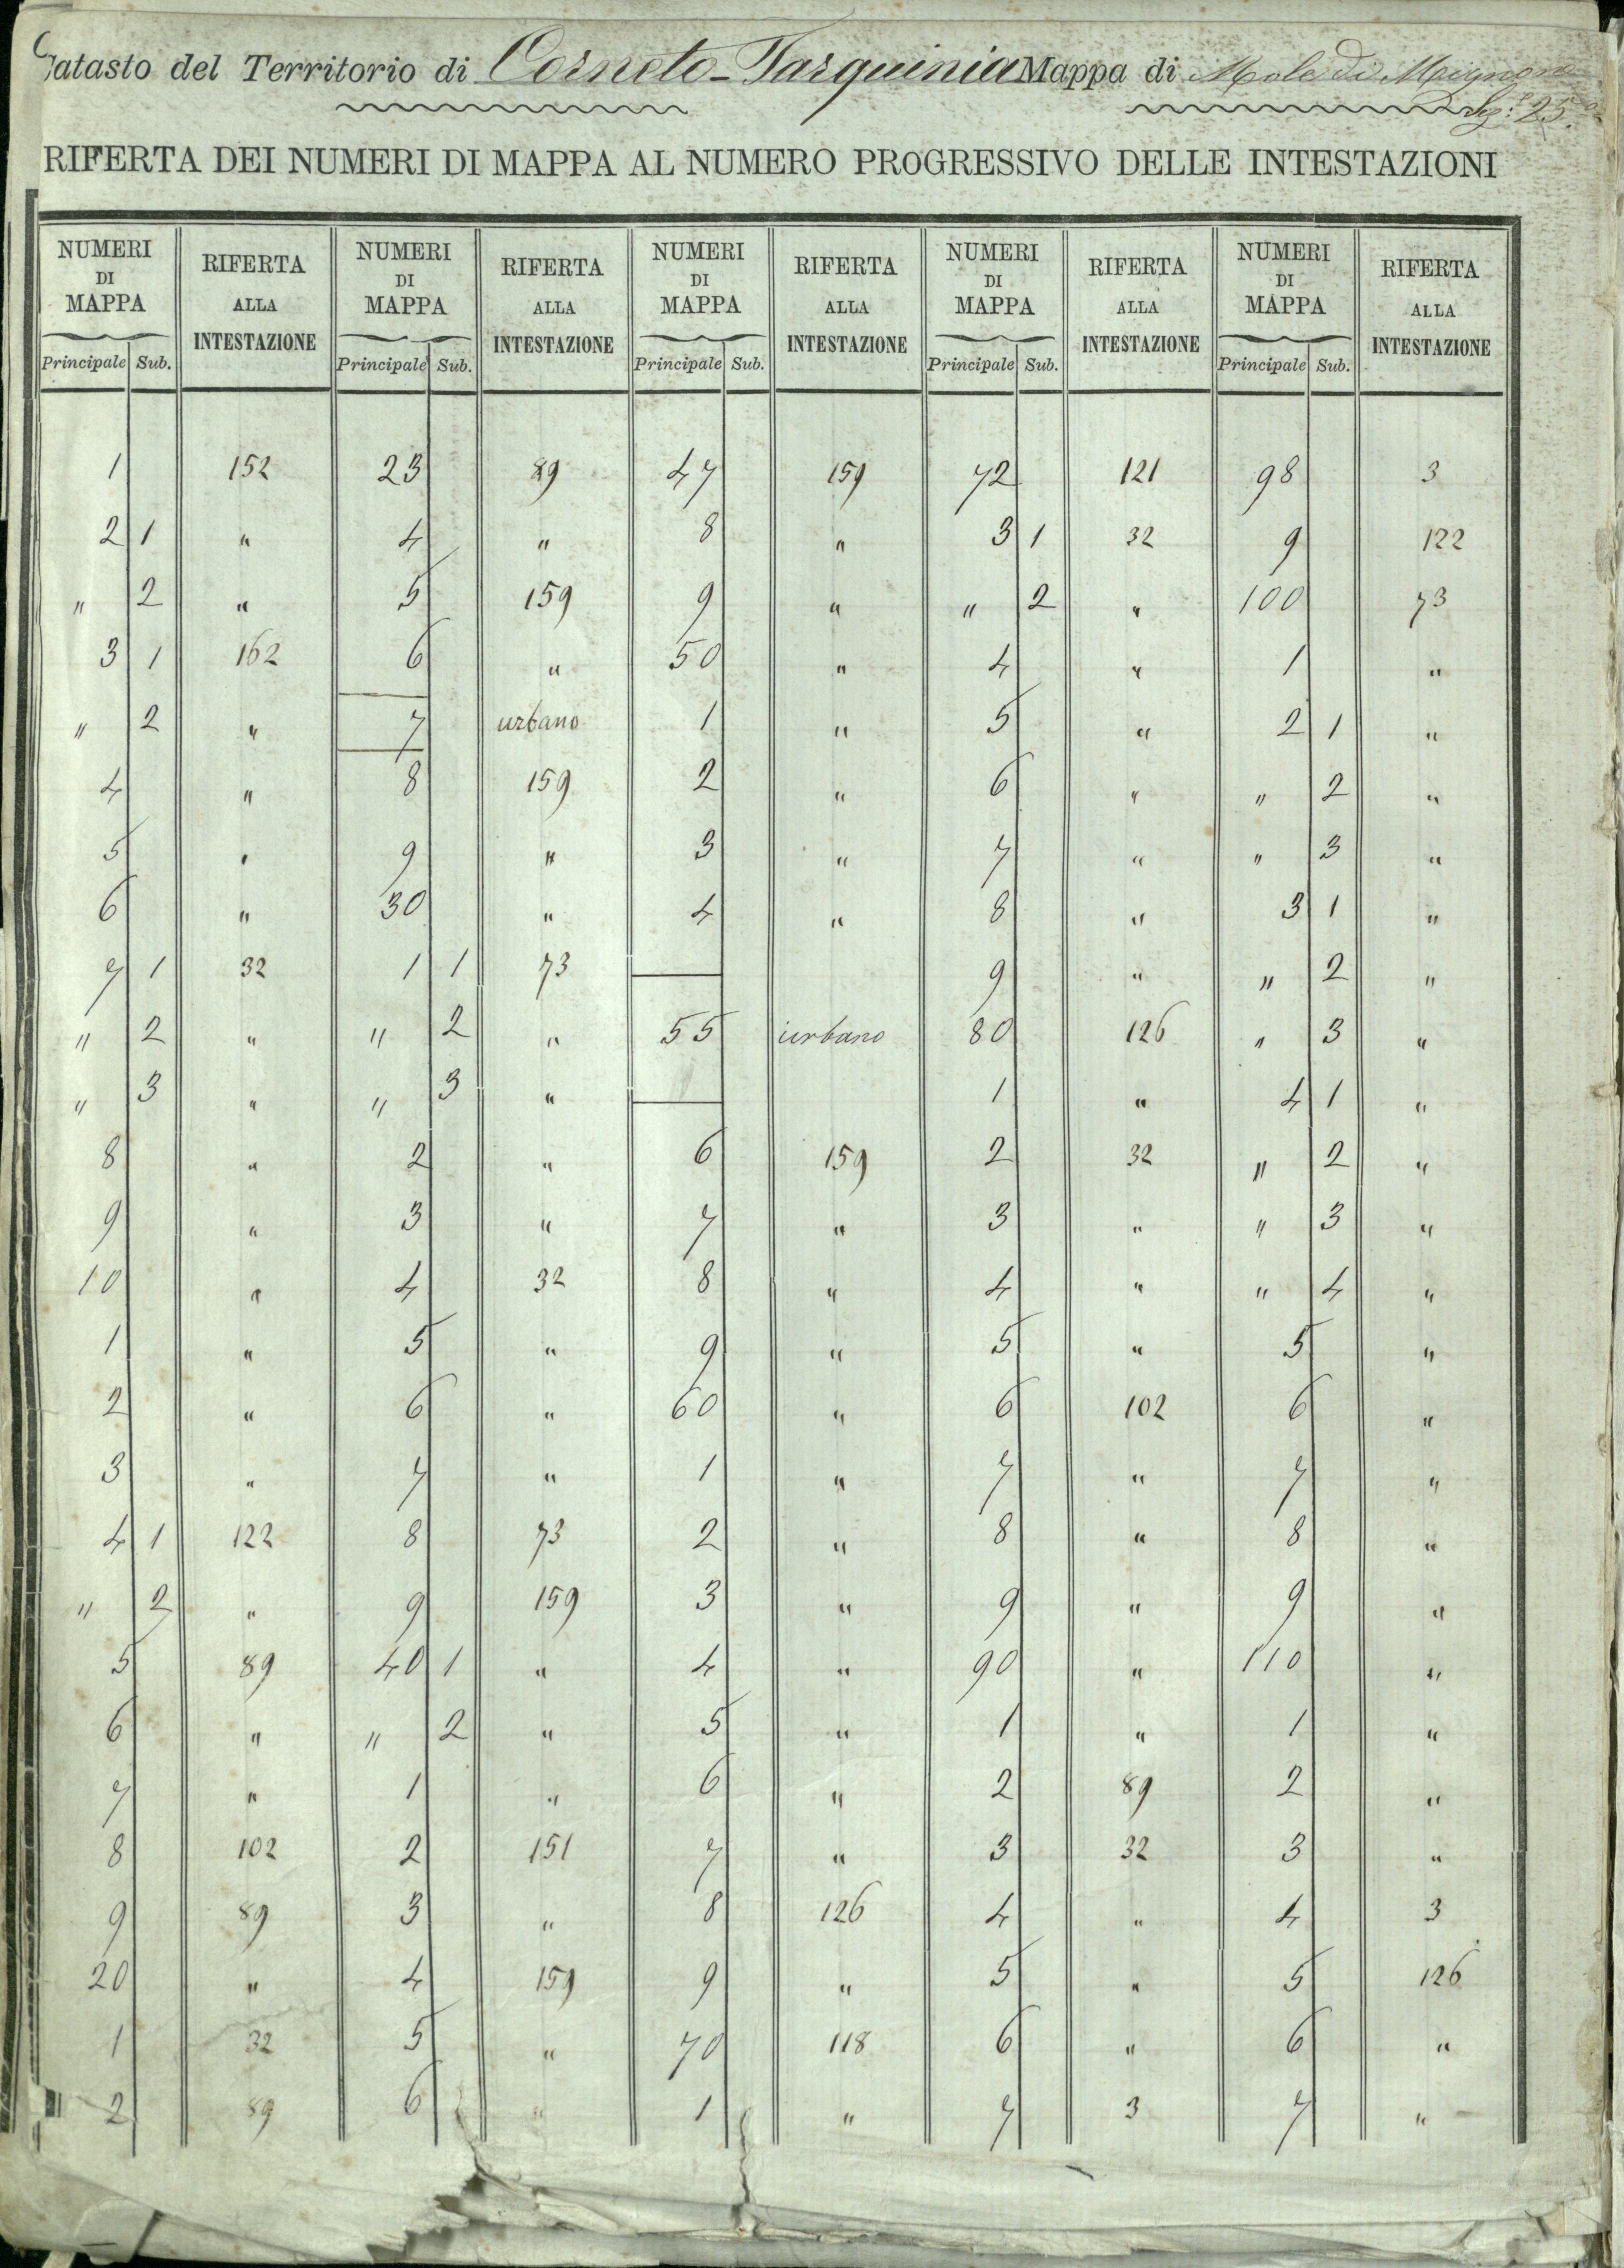 Catasto del Territorio di Corneto-Tarquinia Mappa di Mole di Mignone
Sez.e 25.a
RIFERTA DEI NUMERI DI MAPPA AL NUMERO PROGRESSIVO DELLE INTESTAZIONI
NUMERI DI MAPPA RIFERTA ALLA INTESTAZIONE NUMERI DI MAPPA RIFERTA ALLA INTESTAZIONE NUMERI DI MAPPA RIFERTA ALLA INTESTAZIONE NUMERI DI MAPPA RIFERTA ALLA INTESTAZIONE NUMERI DI MAPPA RIFERTA ALLA INTESTAZIONE
Principale Sub. Principale Sub. Principale Sub. Principale Sub. Principale Sub.
1 152 23 89 47 159 72 121 98 3
2 1 " 4 " 8 " 3 1 32 9 122
" 2 " 5 159 9 " " 2 " 100 73
3 1 162 6 " 50 " 4 " 1 "
" 2 " 7 urbano 1 " 5 " 2 1 "
4 " 8 159 2 " 6 " " 2 "
5 " 9 " 3 " 7 " " 3 "
6 " 30 " 4 " 8 " 3 1 "
7 1 32 1 1 73 9 " " 2 "
" 2 " " 2 " 55 urbano 80 126 " 3 "
" 3 " " 3 " 1 " 4 1 "
8 " 2 " 6 159 2 32 " 2 "
9 " 3 " 7 " 3 " " 3 "
10 " 4 32 8 " 4 " " 4 "
1 " 5 " 9 " 5 " 5 "
2 " 6 " 60 " 6 102 6 "
3 " 7 " 1 " 7 " 7 "
4 1 122 8 73 2 " 8 " 8 "
" 2 " 9 159 3 " 9 " 9 "
5 89 40 1 " 4 " 90 " 110 "
6 " " 2 " 5 " 1 " 1 "
7 " 1 " 6 " 2 89 2 "
8 102 2 151 7 " 3 32 3 "
9 89 3 " 8 126 4 " 4 3
20 " 4 159 9 " 5 " 5 126
1 32 5 " 70 118 6 " 6 "
2 89 6 " 1 " 7 3 7 "